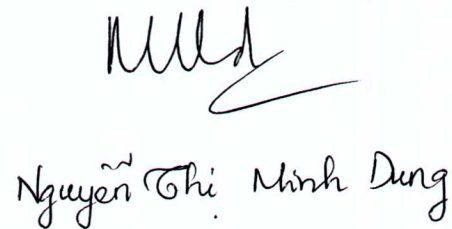 Nguyễn Thị Minh Dung